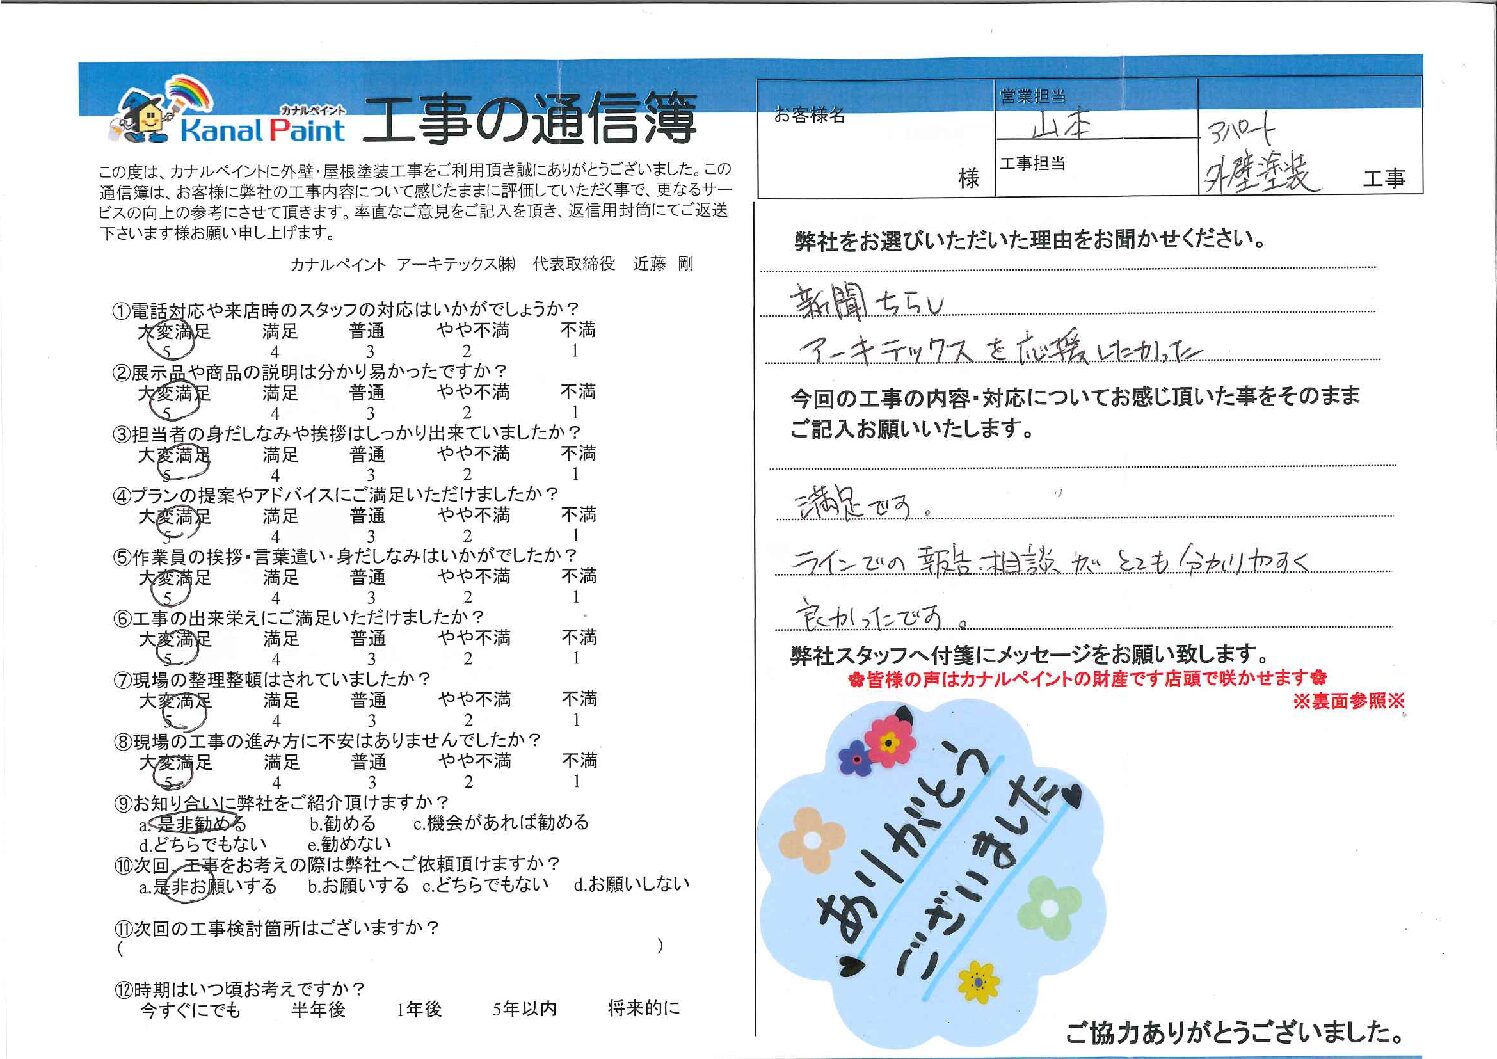 カナルペイント
Kanal Paint
工事の通信簿
この度は、カナルペイントに外壁・屋根塗装工事をご利用頂き誠にありがとうございました。この
通信簿は、お客様に弊社の工事内容について感じたままに評価していただく事で、更なるサー
ビスの向上の参考にさせて頂きます。率直なご意見をご記入を頂き、返信用封筒にてご返送
下さいます様お願い申し上げます。
カナルペイント アーキテックス㈱ 代表取締役 近藤 剛
①電話対応や来店時のスタッフの対応はいかがでしょうか?
大変満足 満足 普通 やや不満 不満
5 4 3 2 1
②展示品や商品の説明は分かり易かったですか?
大変満足 満足 普通 やや不満 不満
5 4 3 2 1
③担当者の身だしなみや挨拶はしっかり出来ていましたか?
大変満足 満足 普通 やや不満 不満
5 4 3 2 1
④プランの提案やアドバイスにご満足いただけましたか?
大変満足 満足 普通 やや不満 不満
5 4 3 2 1
⑤作業員の挨拶・言葉遣い・身だしなみはいかがでしたか?
大変満足 満足 普通 やや不満 不満
5 4 3 2 1
⑥工事の出来栄えにご満足いただけましたか?
大変満足 満足 普通 やや不満 不満
5 4 3 2 1
⑦現場の整理整頓はされていましたか?
大変満足 満足 普通 やや不満 不満
5 4 3 2 1
⑧現場の工事の進み方に不安はありませんでしたか?
大変満足 満足 普通 やや不満 不満
5 4 3 2 1
⑨お知り合いに弊社をご紹介頂けますか?
a.是非勧める b.勧める c.機会があれば勧める
d.どちらでもない e.勧めない
⑩次回、工事をお考えの際は弊社へご依頼頂けますか?
a.是非お願いする b.お願いする c.どちらでもない d.お願いしない
⑪次回の工事検討箇所はございますか?
( )
⑫時期はいつ頃お考えですか?
今すぐにでも 半年後 1年後 5年以内 将来的に
お客様名
様
営業担当
山本
工事担当
アパート
外壁塗装 工事
弊社をお選びいただいた理由をお聞かせください。
新聞ちらし
アーキテックスを応援したかった
今回の工事の内容・対応についてお感じ頂いた事をそのまま
ご記入お願いいたします。
満足です。
ラインでの報告・相談がとても分かりやすく
良かったです。
弊社スタッフへ付箋にメッセージをお願い致します。
✿皆様の声はカナルペイントの財産です店頭で咲かせます✿
※裏面参照※
ありがとう
ございました♥
♥
ご協力ありがとうございました。